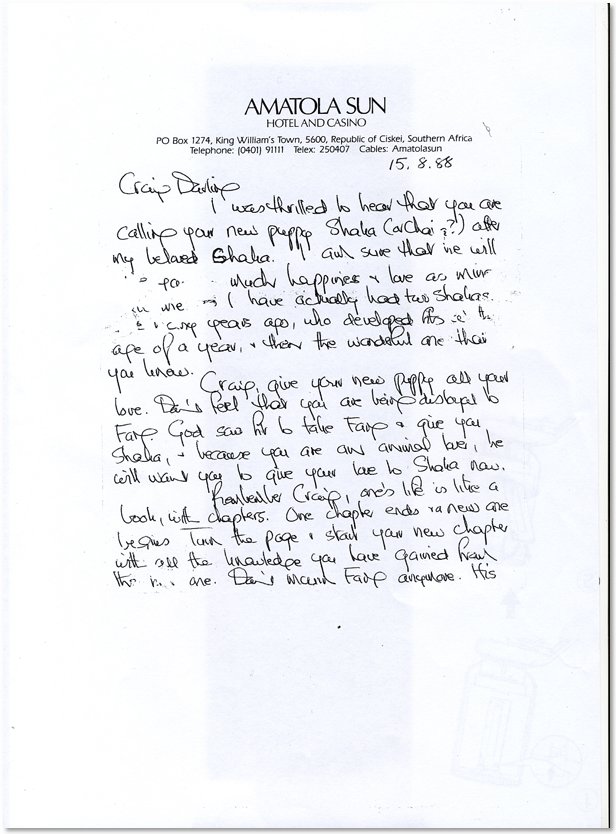 AMATOLA SUN
HOTEL AND CASINO
PO Box 1274, King William's Town, 5600, Republic of Ciskei, Southern Africa
Telephone: (0401) 91111 Telex: 250407 Cables: Amatolasun
15.8.88
Craig Darling
I was thrilled to hear that you are
calling your new puppy Shaka (or Chaka?) after
my beloved Shaka. I am sure that he will
much happiness & love as mine
me I have actually had two Shakas.
years ago, who developed fits at the
age of a year, & then the wonderful one that
you knew.
Craig, give your new puppy all your
love. Don't feel that you are being disloyal to
Fang. God saw fit to take Fang & give you
Shaka, & because you are an animal lover, he
will want you to give your love to Shaka now.
Remember Craig, one's life is like a
book, with chapters. One chapter ends & a new one
begins. Turn the page & start your new chapter
with all the knowledge you have gained from
the one. Don't mourn Fang anymore. His